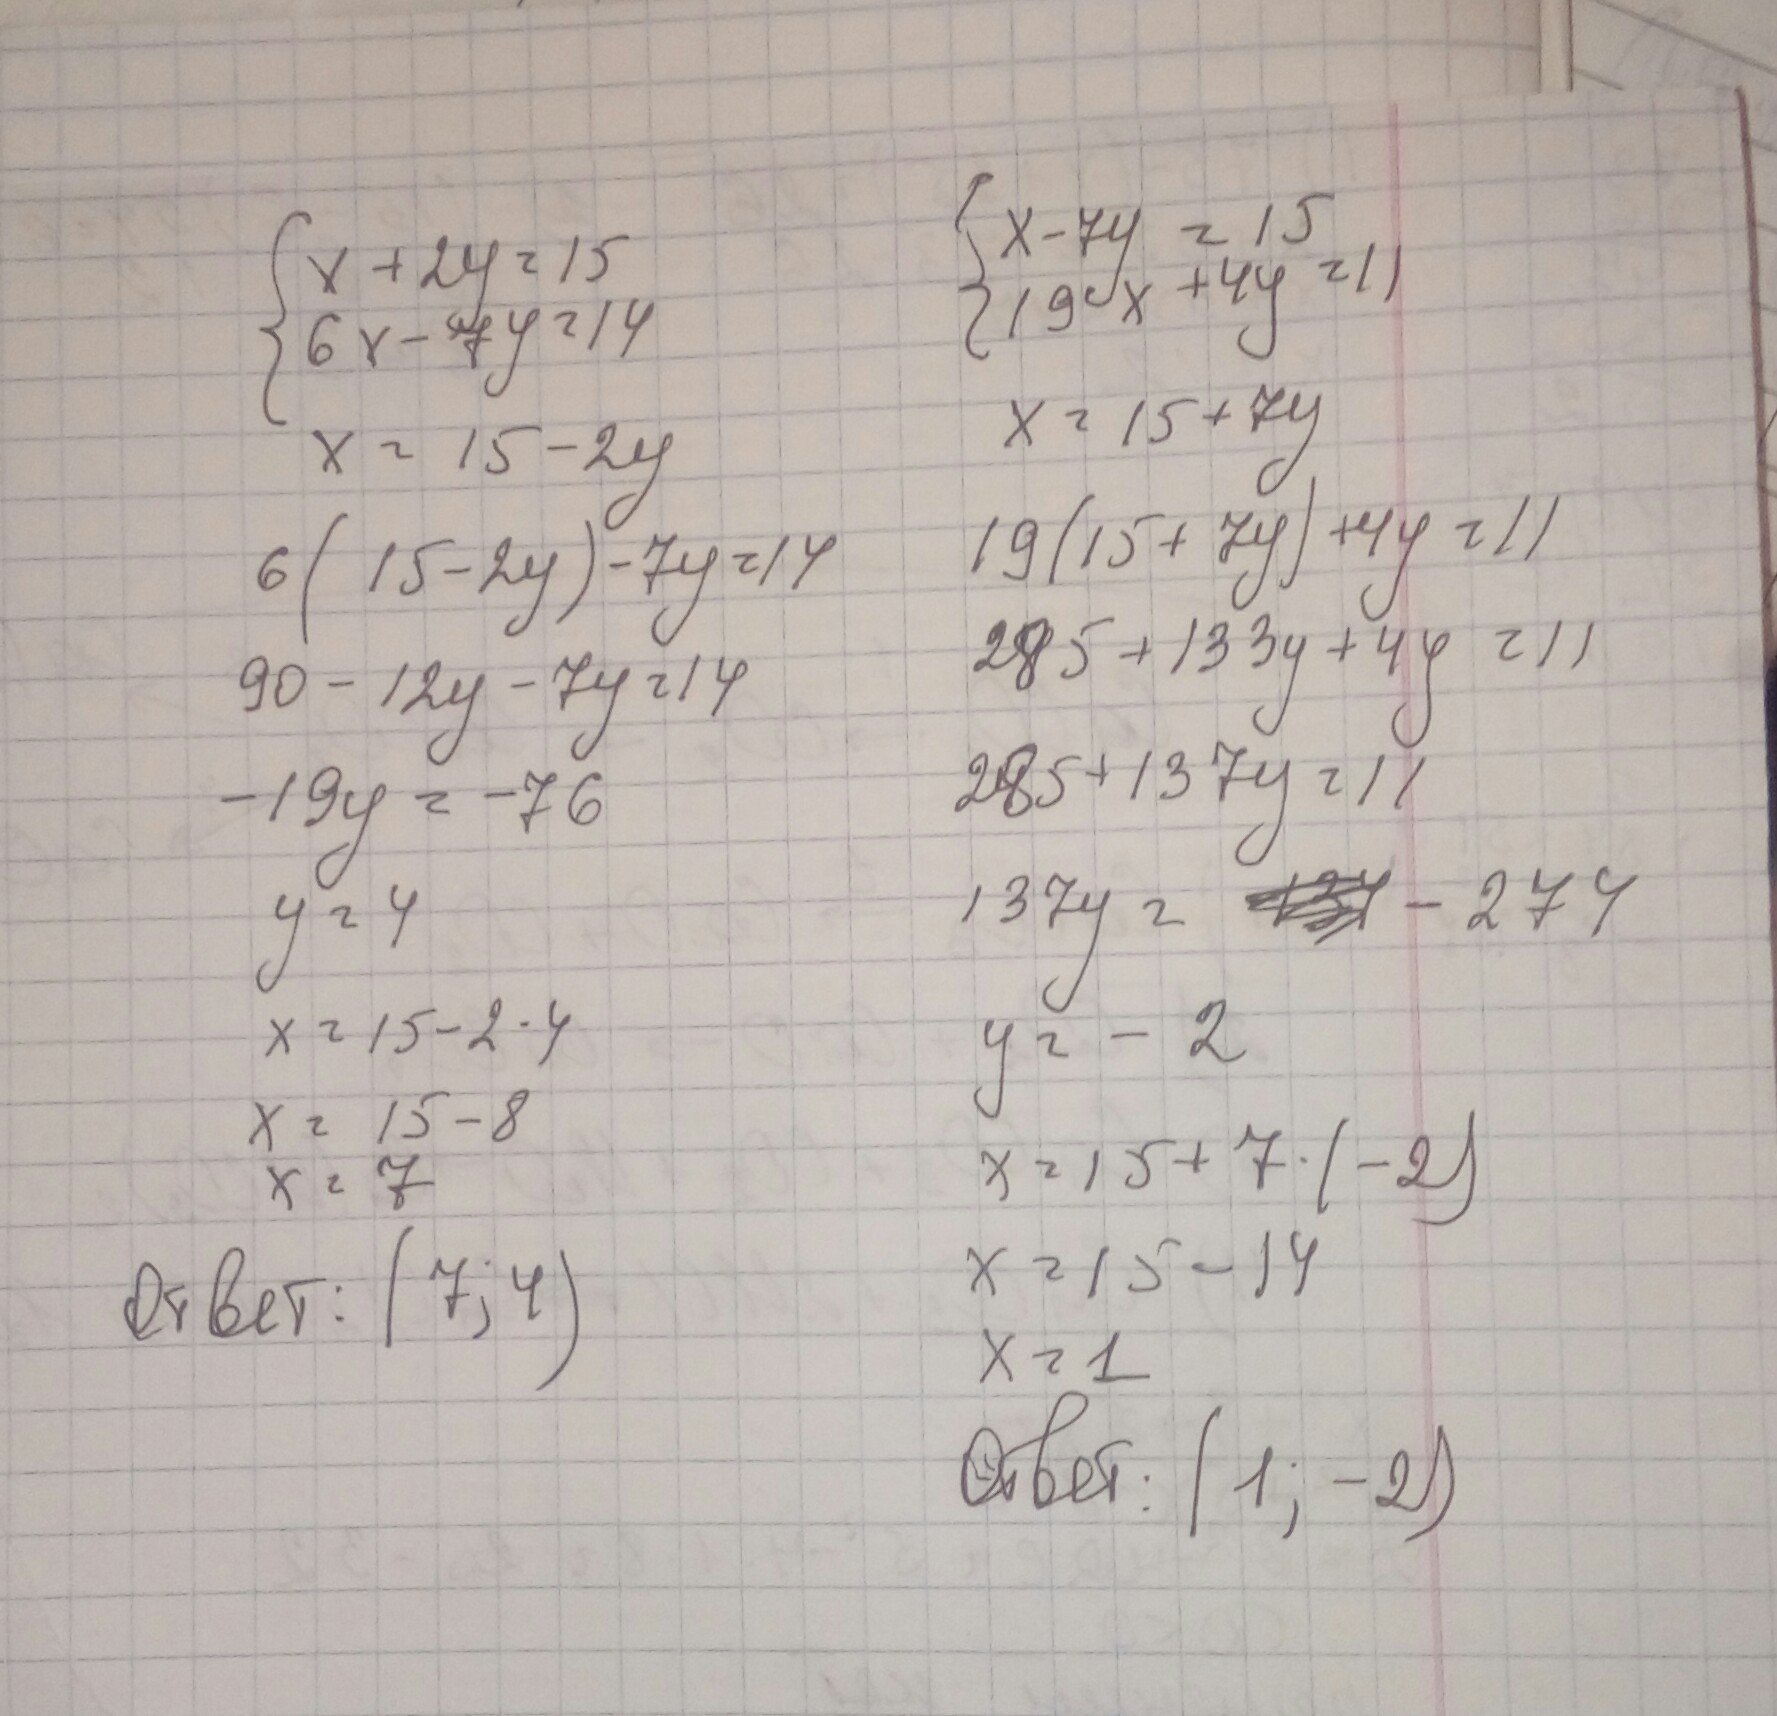 x + 2y = 15
6x - 7y = 14
x = 15 - 2y
6(15 - 2y) - 7y = 14
90 - 12y - 7y = 14
-19y = -76
y = 4
x = 15 - 2·4
x = 15 - 8
x = 7
Ответ: (7; 4)
x - 7y = 15
19x + 4y = 11
x = 15 + 7y
19(15 + 7y) + 4y = 11
285 + 133y + 4y = 11
285 + 137y = 11
137y = - 274
y = - 2
x = 15 + 7·(-2)
x = 15 - 14
x = 1
Ответ: (1; -2)